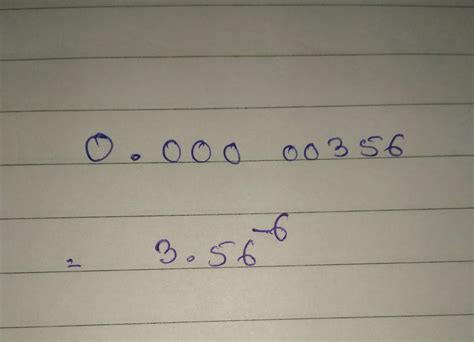 0.000 00356
= 3.56⁻⁶